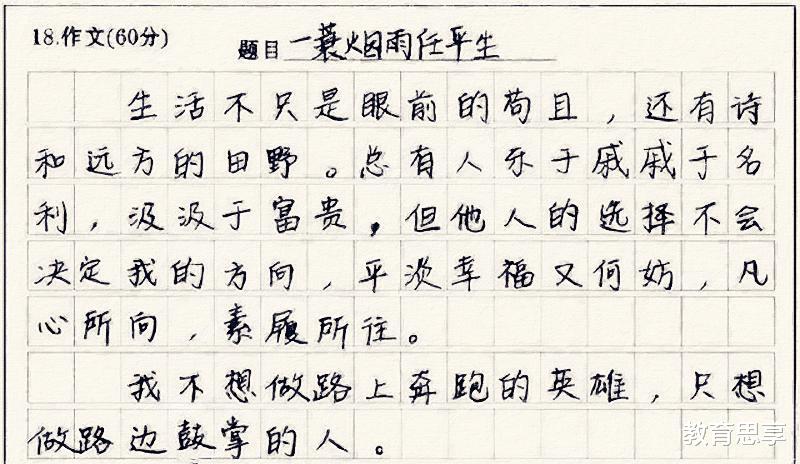 18.作文(60分)
题目 一蓑烟雨任平生
生活不只是眼前的苟且，还有诗
和远方的田野。总有人乐于戚戚于名
利，汲汲于富贵，但他人的选择不会
决定我的方向，平淡幸福又何妨，凡
心所向，素履所往。
我不想做路上奔跑的英雄，只想
做路边鼓掌的人。
教育思享